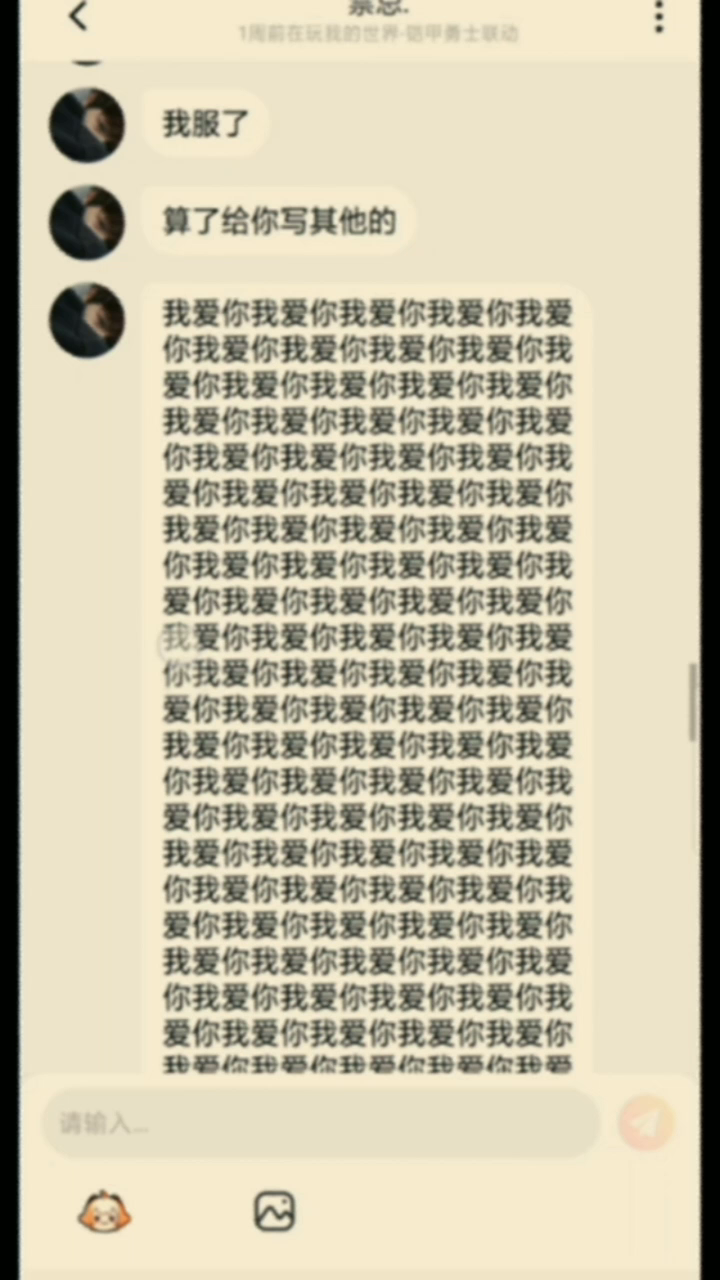 禁忌.
1周前在玩我的世界·铠甲勇士联动
我服了
算了给你写其他的
我爱你我爱你我爱你我爱你我爱
你我爱你我爱你我爱你我爱你我
爱你我爱你我爱你我爱你我爱你
我爱你我爱你我爱你我爱你我爱
你我爱你我爱你我爱你我爱你我
爱你我爱你我爱你我爱你我爱你
我爱你我爱你我爱你我爱你我爱
你我爱你我爱你我爱你我爱你我
爱你我爱你我爱你我爱你我爱你
我爱你我爱你我爱你我爱你我爱
你我爱你我爱你我爱你我爱你我
爱你我爱你我爱你我爱你我爱你
我爱你我爱你我爱你我爱你我爱
你我爱你我爱你我爱你我爱你我
爱你我爱你我爱你我爱你我爱你
我爱你我爱你我爱你我爱你我爱
你我爱你我爱你我爱你我爱你我
爱你我爱你我爱你我爱你我爱你
我爱你我爱你我爱你我爱你我爱
你我爱你我爱你我爱你我爱你我
爱你我爱你我爱你我爱你我爱你
我爱你我爱你我爱你我爱你我爱
请输入...